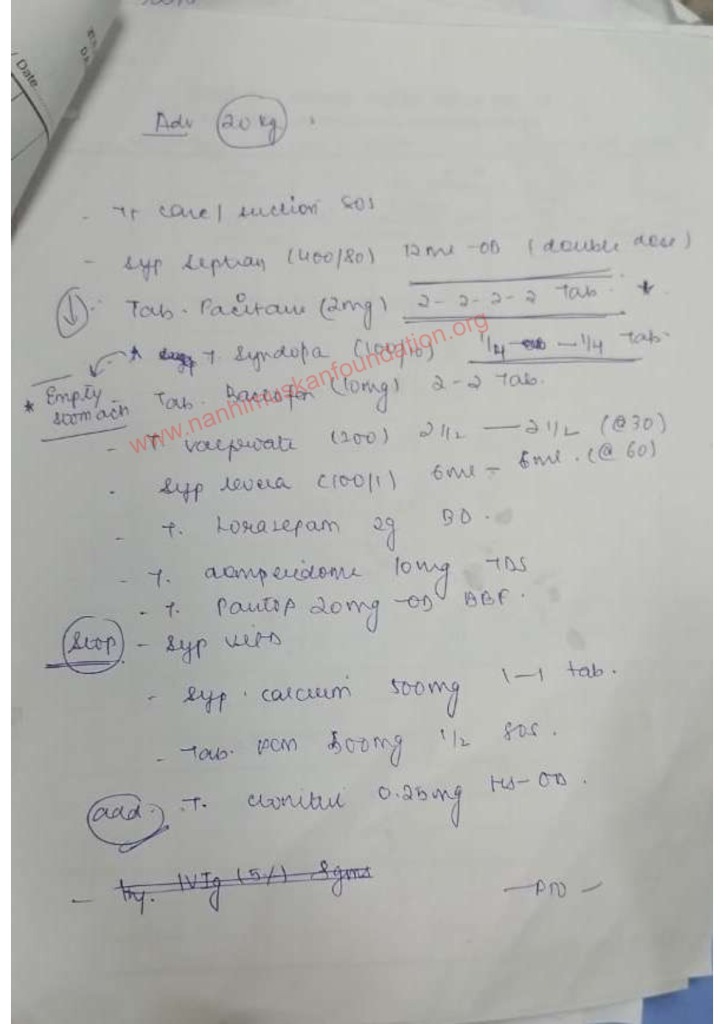 Date
Adv 20 kg
- Tt care / suction SOS
- Syp Septran (400/80) 12ml - OD (double dose)
↓ Tab. Pacitane (2mg) 2-2-2-2 Tab. *
* T. Syndopa (100/10) 1/4 - 1/4 Tab.
* Empty stomach
- Tab. Baclofen (10mg) 2-2 Tab.
www.nanhimuskanfoundation.org
- T. valproate (200) 2 1/2 — 2 1/2 (@30)
- Syp levera (100/1) 6ml - 6ml. (@ 60)
- T. Lorazepam 2g BD.
- T. domperidome 10mg TDS
- T. Pantop 20mg - OD BBF.
Stop - Syp
- Syp. calcium 500mg 1-1 tab.
- Tab. PCM 500mg 1/2 SOS.
add. T. 0.25mg HS-OD.
- Inj. IVIg (5%) 5gms